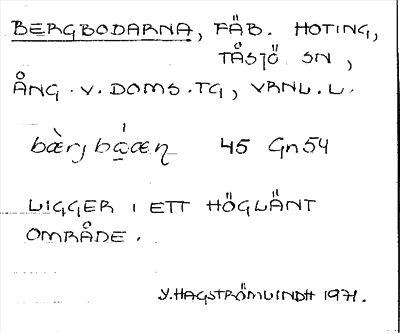 BERGBODARNA, FÄB. HOTING,
TÅSJÖ SN,
ÅNG. V. DOMS. TG, VRNL. L.
bæ̀rj bą́æɳ 45 Gn54
LIGGER I ETT HÖGLÄNT
OMRÅDE.
Y. HAGSTRÖMLINDH 1971.